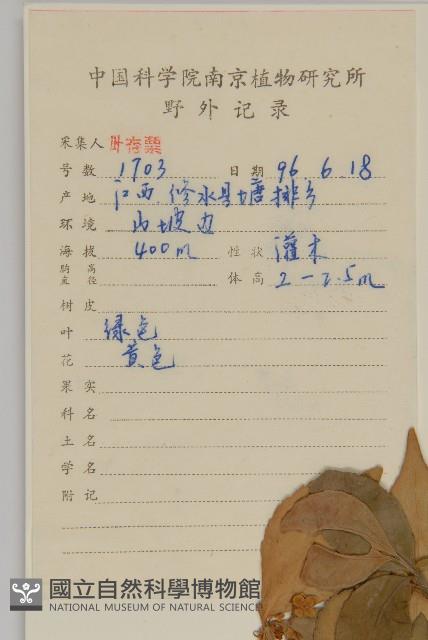 中国科学院南京植物研究所
野外记录
采集人 叶存粟
号数 1703 日期 96.6.18
产地 江西.修水县塘排乡
环境 山坡边
海拔 400m 性状 灌木
胸高直径 体高 2-2.5m
树皮
叶 绿色
花 黄色
果实
科名
土名
学名
附记
國立自然科學博物館
NATIONAL MUSEUM OF NATURAL SCIENCE